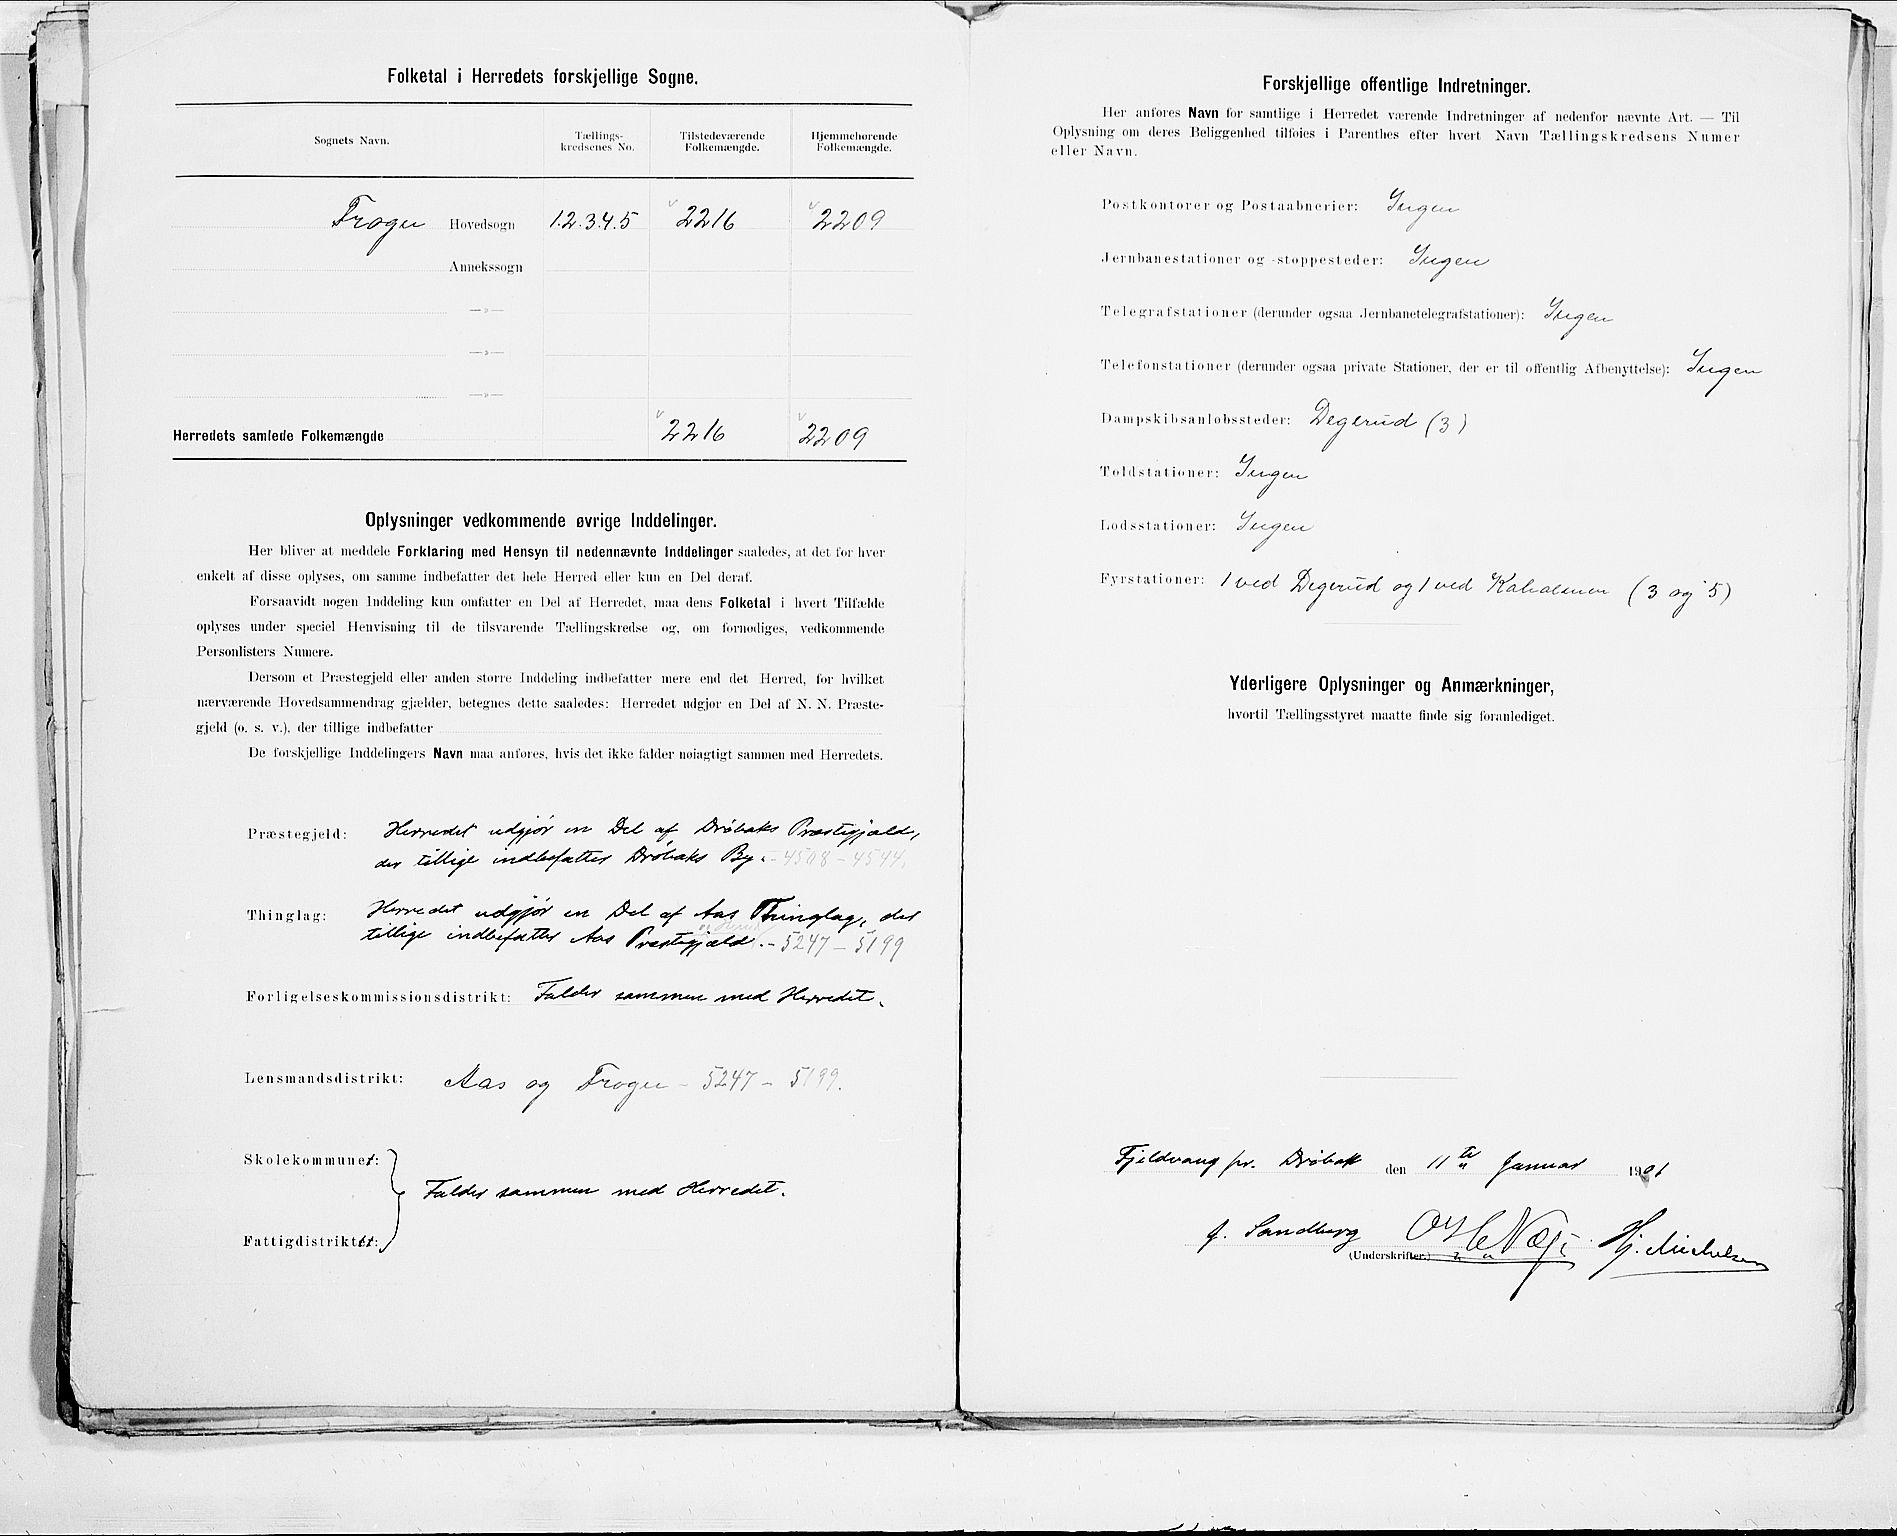 Folketal i Herredets forskjellige Sogne.
Sognets Navn.
Tællings-
kredsenes No.
Tilstedeværende
Folkemængde.
Hjemmehørende
Folkemængde.
Frogn Hovedsogn 1.2.3.4.5 2216 2209
Annekssogn
—»—
—»—
—»—
Herredets samlede Folkemængde 2216 2209
Oplysninger vedkommende øvrige Inddelinger.
Her bliver at meddele Forklaring med Hensyn til nedennævnte Inddelinger saaledes, at det for hver
enkelt af disse oplyses, om samme indbefatter det hele Herred eller kun en Del deraf.
Forsaavidt nogen Inddeling kun omfatter en Del af Herredet, maa dens Folketal i hvert Tilfælde
oplyses under speciel Henvisning til de tilsvarende Tællingskredse og, om fornødiges, vedkommende
Personlisters Numere.
Dersom et Præstegjeld eller anden større Inddeling indbefatter mere end det Herred, for hvilket
nærværende Hovedsammendrag gjælder, betegnes dette saaledes: Herredet udgjør en Del af N. N. Præste-
gjeld (o. s. v.), der tillige indbefatter
De forskjellige Inddelingers Navn maa anføres, hvis det ikke falder nøiagtigt sammen med Herredets.
Præstegjeld: Herredet udgjør en Del af Drøbaks Præstegjæld,
der tillige indbefatter Drøbaks By. - 4508 - 4544.
Thinglag: Herredet udgjør en Del af Aas Thinglag, der
tillige indbefatter Aas Præstegjæld. - 5247 - 5199
Forligelseskommissionsdistrikt: Falder sammen med Herredet.
Lensmandsdistrikt: Aas og Frogn - 5247 - 5199.
Skolekommuner:
Falder sammen med Herredet.
Fattigdistrikter:
Forskjellige offentlige Indretninger.
Her anføres Navn for samtlige i Herredet værende Indretninger af nedenfor nævnte Art. — Til
Oplysning om deres Beliggenhed tilføies i Parenthes efter hvert Navn Tællingskredsens Numer
eller Navn.
Postkontorer og Postaabnerier: Ingen
Jernbanestationer og -stoppesteder: Ingen
Telegrafstationer (derunder ogsaa Jernbanetelegrafstationer): Ingen
Telefonstationer (derunder ogsaa private Stationer, der er til offentlig Afbenyttelse): Ingen
Dampskibsanløbssteder: Degerud (3)
Toldstationer: Ingen
Lodsstationer: Ingen
Fyrstationer: 1 ved Degerud og 1 ved Kaholmen (3 og 5)
Yderligere Oplysninger og Anmærkninger,
hvortil Tællingsstyret maatte finde sig foranlediget.
Fjeldvang pr. Drøbak den 11te Januar 1901
J. Sandberg Hj. Michelsen
(Underskrifter.)